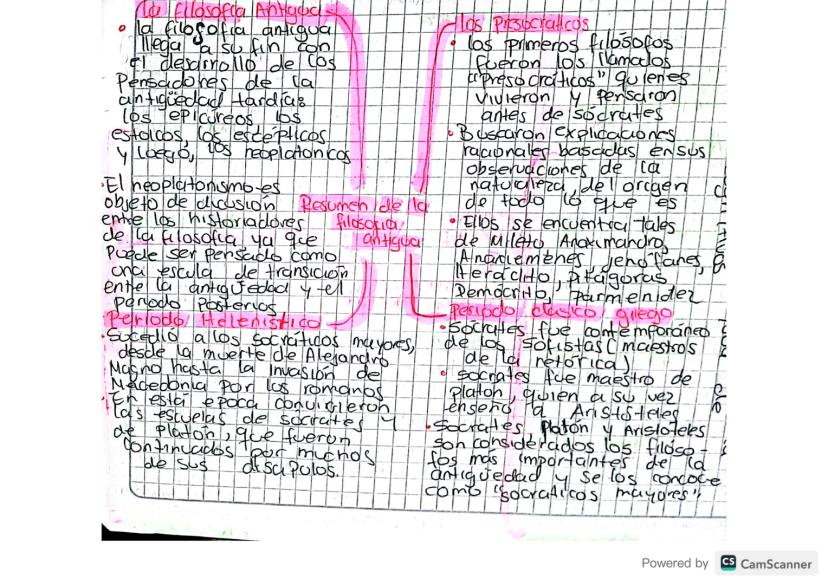 la filosofia Antigua
la filosofia antigua
llega a su fin con
el desarrollo de los
Pensadores de la
antigüedad tardia:
los epicúreos los
estoicos, los escépticos
y luego, los neoplatonicos
El neoplatonismo es
objeto de dicusión
entre los historiadores
de la filosofia ya que
puede ser pensado como
una escula de transición
ente la antigüedad y el
Periodo posterios
Resumen de la
filosofia
antigua
Periodo Helenistico
Sucedió a los socráticos mayores,
desde la muerte de Alejandro
Magno hasta la invasión de
Macedonia por los romanos
En esta epoca convivieron
las escuelas de socrates y
de platón, que fueron
continuados por muchos
de sus discipulos.
los Presocraticos
los primeros filósofos
fueron los llamados
"presocráticos" quienes
vivieron y pensaron
antes de sócrates
Buscaron explicaciones
racionales basadas en sus
observaciones de la
naturaleza, del origen
de todo lo que es
Ellos se encuentra tales
de Mileto Anaximandro,
Anaxiemenes, jenófanes,
Heraclito, pitágoras
Demócrito, parmenidez
Periodo clasico griego
Sócrates fue contemporáneo
de los sofistas (maestros
de la retorica)
socrates fue maestro de
platon, quien a su vez
enseno a Aristoteles
Socrates, Platón y Aristoteles
son considerados los filoso-
fos más importantes de la
antigüedad y se los conoce
como "socraticos mayores"
Powered by CS CamScanner